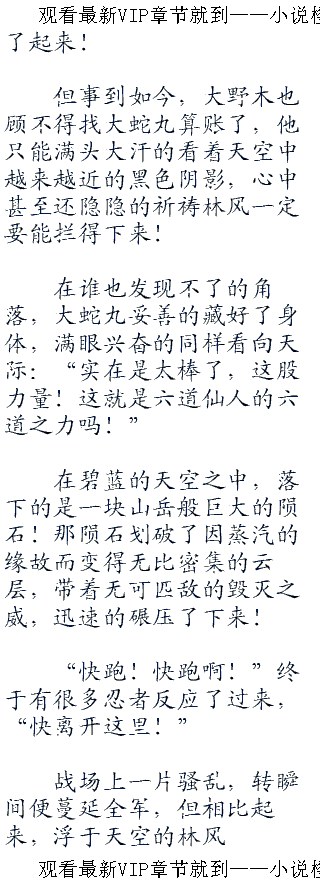 观看最新VIP章节就到——小说检
了起来！
但事到如今，大野木也
顾不得找大蛇丸算账了，他
只能满头大汗的看着天空中
越来越近的黑色阴影，心中
甚至还隐隐的祈祷林风一定
要能拦得下来！
在谁也发现不了的角
落，大蛇丸妥善的藏好了身
体，满眼兴奋的同样看向天
际：“实在是太棒了，这股
力量！这就是六道仙人的六
道之力吗！”
在碧蓝的天空之中，落
下的是一块山岳般巨大的陨
石！那陨石划破了因蒸汽的
缘故而变得无比密集的云
层，带着无可匹敌的毁灭之
威，迅速的碾压了下来！
“快跑！快跑啊！”终
于有很多忍者反应了过来，
“快离开这里！”
战场上一片骚乱，转瞬
间便蔓延全军，但相比起
来，浮于天空的林风
观看最新VIP章节就到——小说检